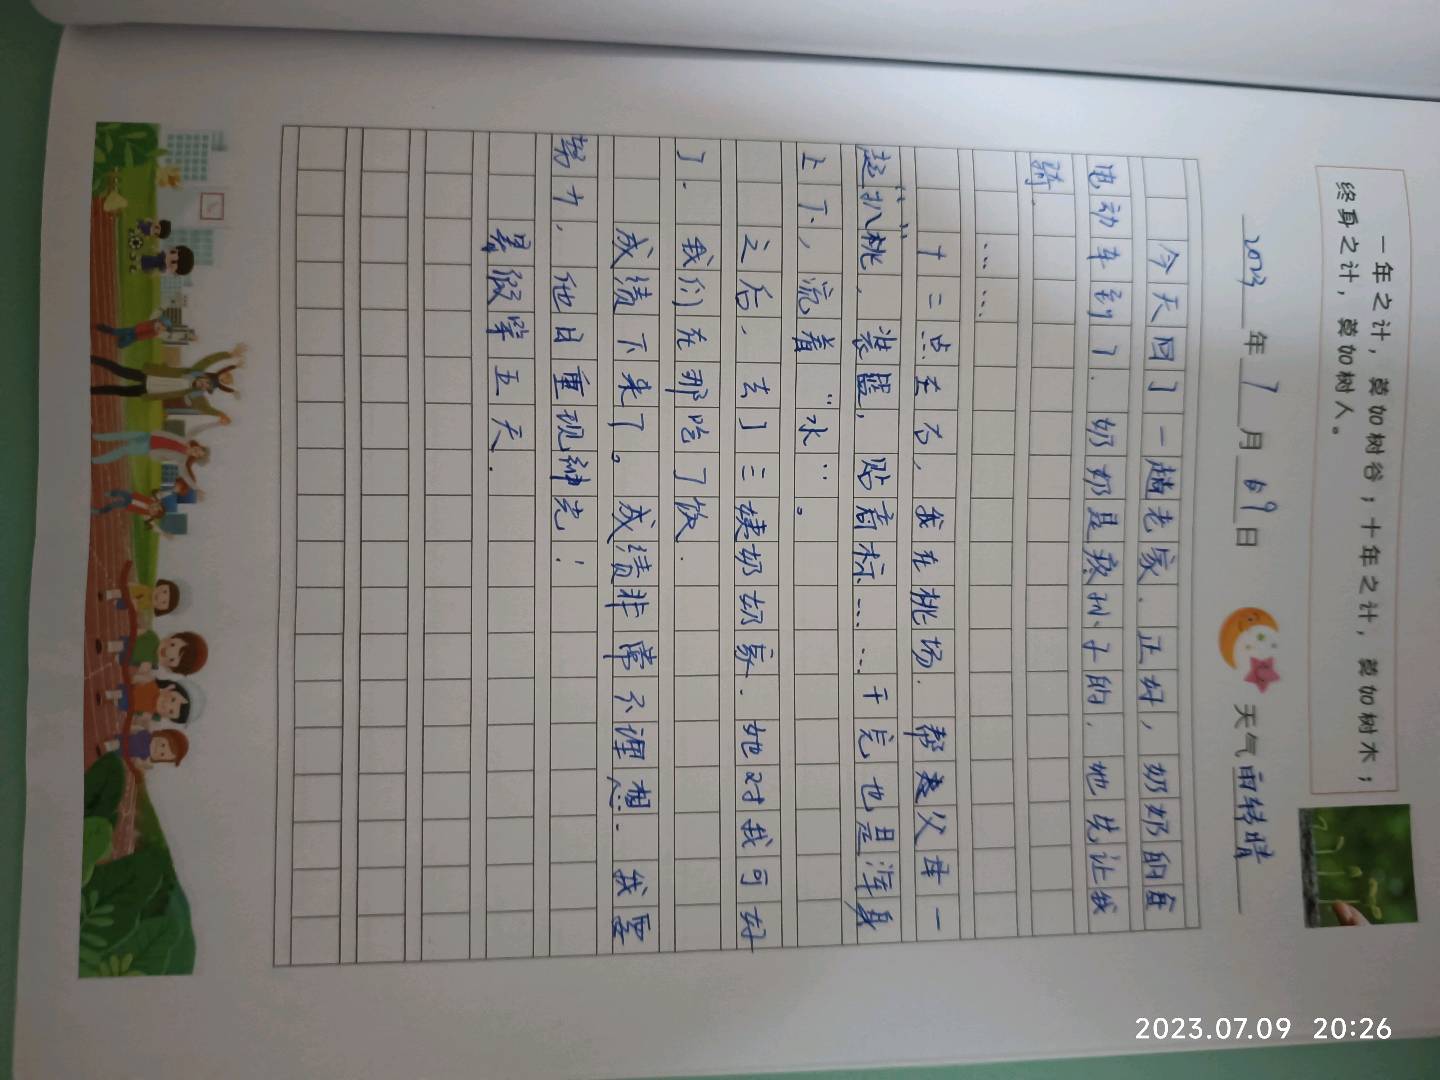 一年之计，莫如树谷；十年之计，莫如树木；
终身之计，莫如树人。
2023年7月9日 天气雨转晴
今天回了一趟老家.正好，奶奶的
电动车到了.奶奶是疼孙子的，她先让我
骑.
……
十二点左右，我在桃场.帮父母一
起“扒”桃，装筐，贴商标……干完也是浑身
上下，流着“水”。
之后，去了三姨奶奶家.她对我可好
了.我们在那吃了饭.
成绩下来了。成绩非常不理想.我要
努力，他日重现绅光！
暑假第五天.
2023.07.09 20:26